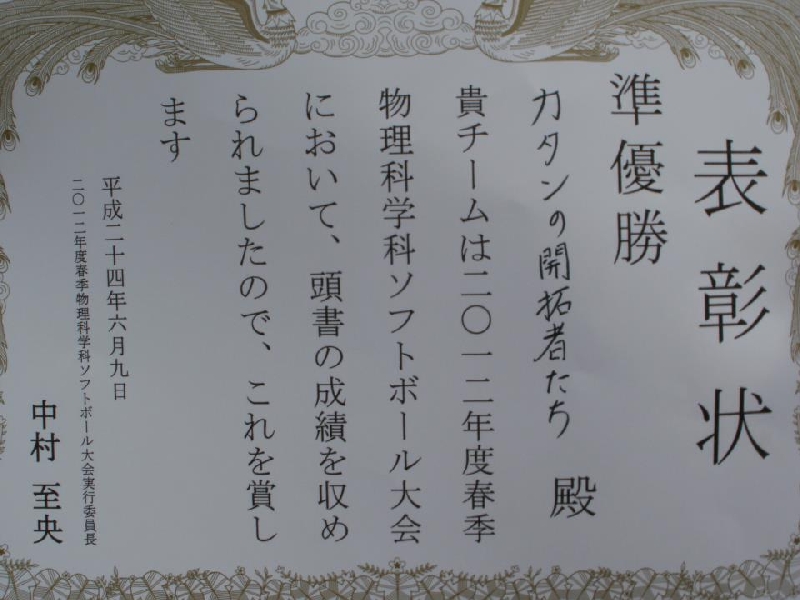 表彰状
準優勝
カタンの開拓者たち 殿
貴チームは二〇一二年度春季
物理科学科ソフトボール大会
において、頭書の成績を収め
られましたので、これを賞し
ます
平成二十四年六月九日
二〇一二年度春季物理科学科ソフトボール大会実行委員長
中村 至央